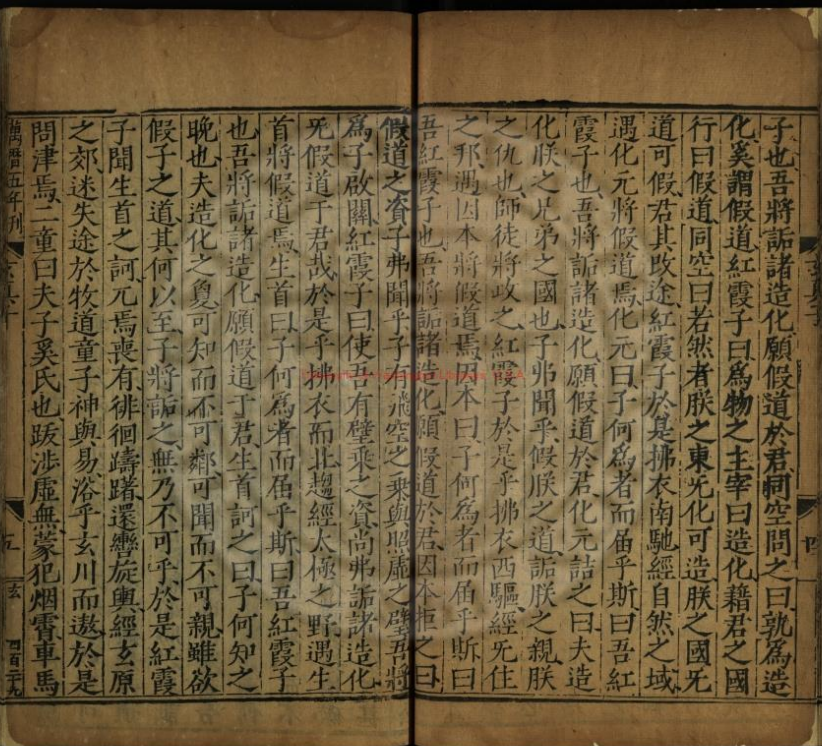 子也吾將詬諸造化願假道於君祠空問之曰孰為造
化奚謂假道紅霞子曰為物之主宰曰造化藉君之國
行曰假道同空曰若然者朕之東旡化可造朕之國旡
道可假君其敗途紅霞子於是拂衣南馳經自然之域
遇化元將假道焉化元曰子何為者而届乎斯曰吾紅
霞子也吾將詬諸造化願假道於君化元詰之曰夫造
化朕之兄弟之國也子弗聞乎假朕之道詬朕之親朕
之仇也師徒將攻之紅霞子於是乎拂衣西驅經旡住
之邦遇因本將假道焉因本曰子何為者而届乎斯曰
吾紅霞子也吾將詬諸造化願假道於君因本拒之曰
假道之資子弗聞乎子有飛空之乗與照虛之璧吾將
為子啟關紅霞子曰使吾有璧乗之資尚弗詬諸造化
旡假道于君哉於是乎拂衣而北趨經太極之野遇生
首將假道焉生首曰子何為者而届乎斯曰吾紅霞子
也吾將詬諸造化願假道于君生首訶之曰子何知之
晚也夫造化之
可知而不可鄰可聞而不可親雖欲
假子之道其何以至子將詬之無乃不可乎於是紅霞
子聞生首之訶兀焉喪有徘徊躊躇還轡旋輿經玄原
之郊迷失途於牧道童子神與易浴乎玄川而遨於是
問津焉二童曰夫子奚氏也跋涉虛無蒙犯烟霄車馬
萬曆五年刊
玄真子
四
五
玄
四百二十九